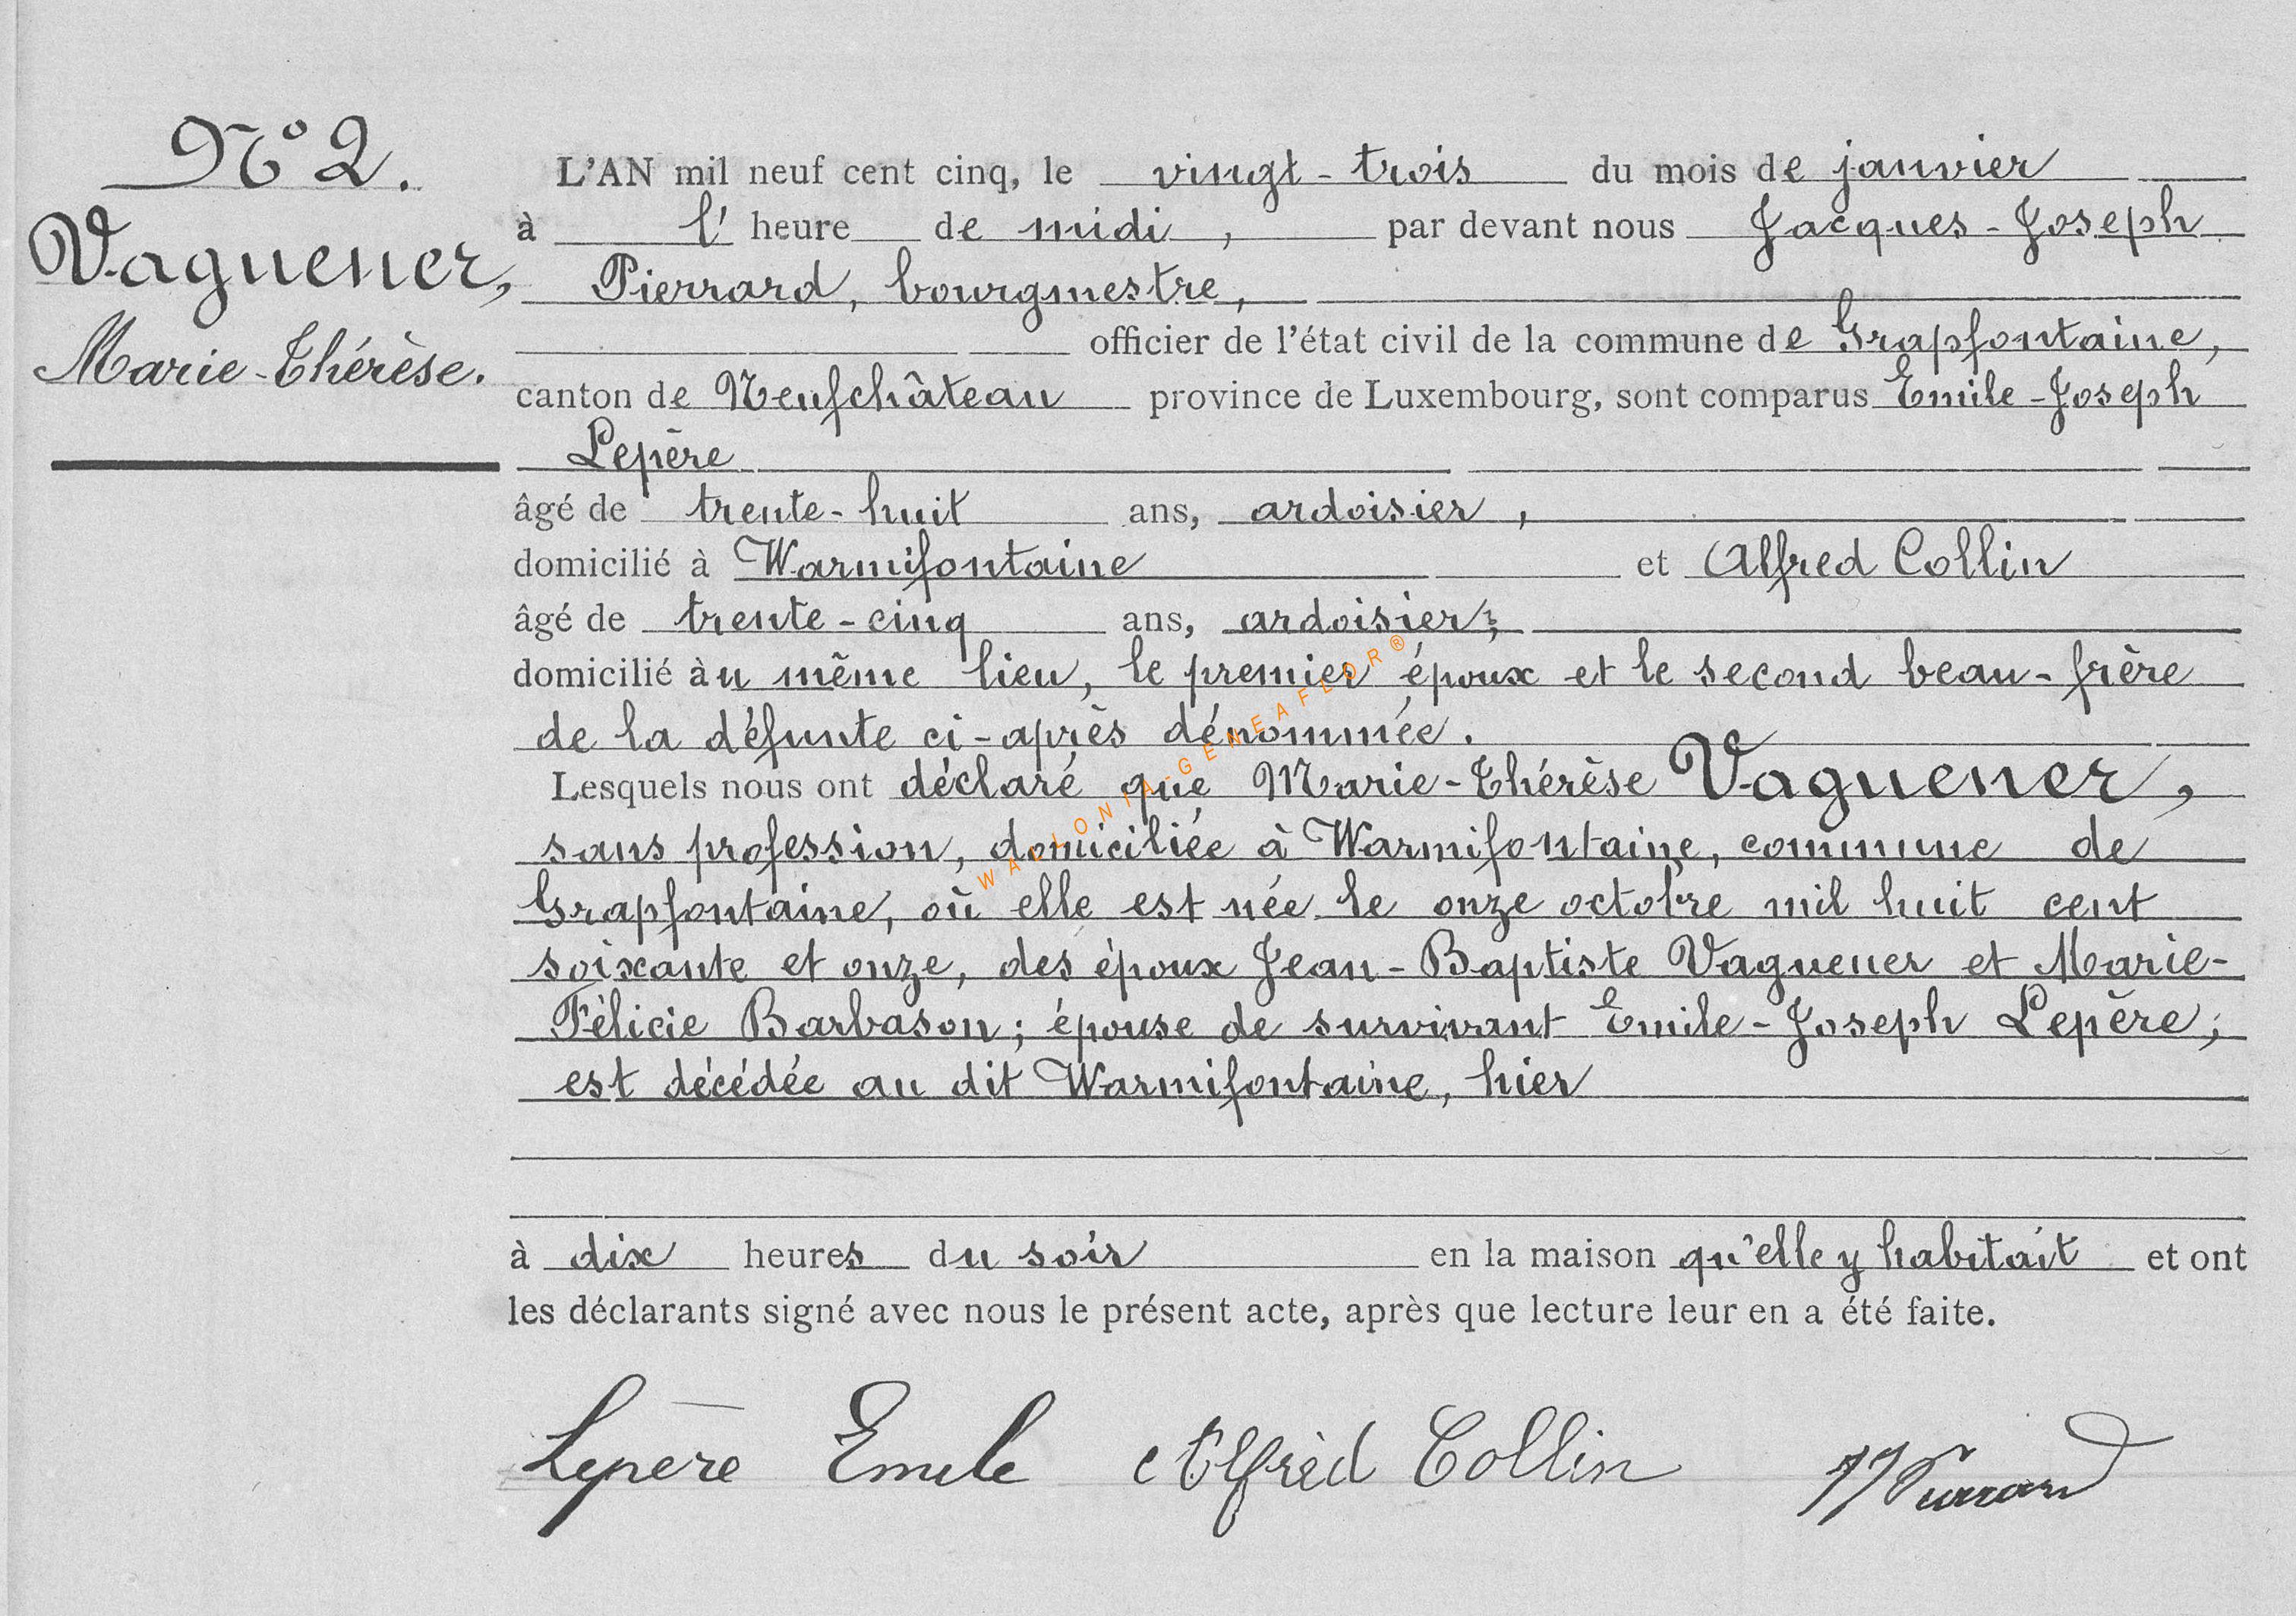 N° 2.
Vaguener,
Marie-Thérèse.
L'AN mil neuf cent cinq, le vingt-trois du mois de janvier
à l'heure de midi, par devant nous Jacques-Joseph
Pierrard, bourgmestre,
officier de l'état civil de la commune de Grapfontaine,
canton de Neufchâteau province de Luxembourg, sont comparus Emile-Joseph
Lepère
âgé de trente-huit ans, ardoisier,
domicilié à Warmifontaine et Alfred Collin
âgé de trente-cinq ans, ardoisier;
domicilié àu même lieu, le premier époux et le second beau-frère
de la défunte ci-après dénommée.
Lesquels nous ont déclaré que Marie-Thérèse Vaguener,
sans profession, domiciliée à Warmifontaine, commune de
Grapfontaine, où elle est née le onze octobre mil huit cent
soixante et onze, des époux Jean-Baptiste Vaguener et Marie-
Félicie Barbason; épouse de survivant Emile-Joseph Lepère;
est décédée au dit Warmifontaine, hier
à dix heures du soir en la maison qu'elle y habitait et ont
les déclarants signé avec nous le présent acte, après que lecture leur en a été faite.
Lepère Emile Alfred Collin JJ Pierrard
WALLONIA-GENEAFLOR®